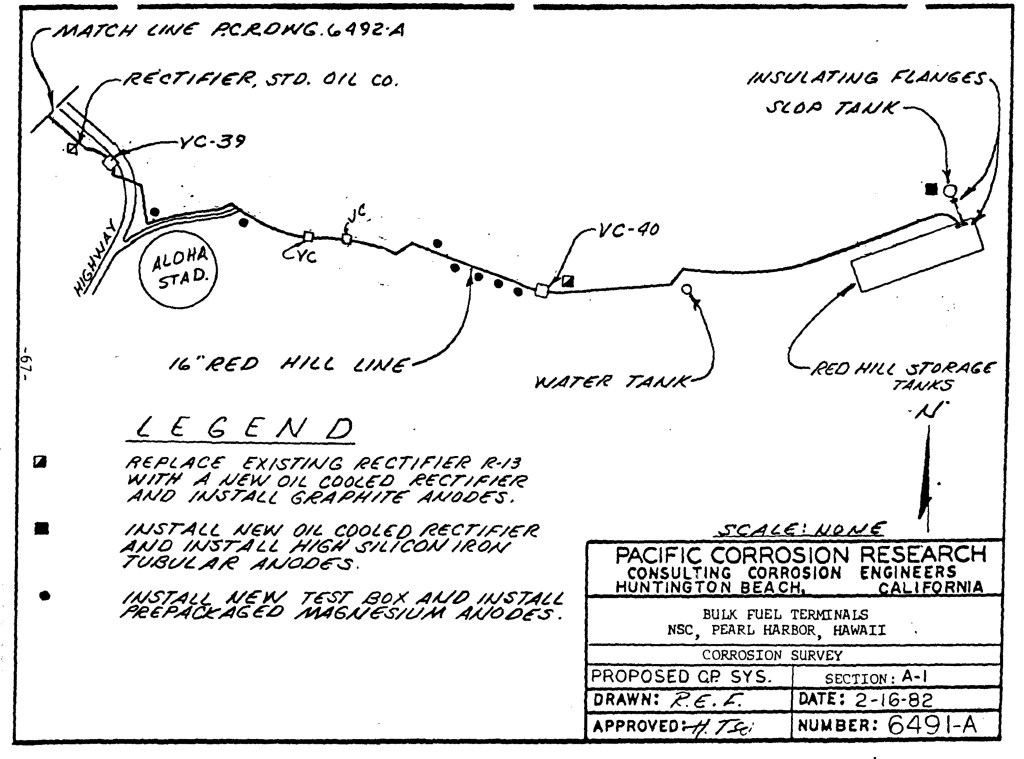 MATCH LINE P.C.R.DWG.6492-A
RECTIFIER, STD. OIL CO.
VC-39
INSULATING FLANGES
SLOP TANK
HIGHWAY
ALOHA
STAD.
VC
VC
VC-40
16" RED HILL LINE
WATER TANK
RED HILL STORAGE
TANKS
-67-
N
LEGEND
REPLACE EXISTING RECTIFIER R-13
WITH A NEW OIL COOLED RECTIFIER
AND INSTALL GRAPHITE ANODES.
INSTALL NEW OIL COOLED RECTIFIER
AND INSTALL HIGH SILICON IRON
TUBULAR ANODES.
INSTALL NEW TEST BOX AND INSTALL
PREPACKAGED MAGNESIUM ANODES.
SCALE: NONE
PACIFIC CORROSION RESEARCH
CONSULTING CORROSION ENGINEERS
HUNTINGTON BEACH, CALIFORNIA
BULK FUEL TERMINALS
NSC, PEARL HARBOR, HAWAII
CORROSION SURVEY
PROPOSED C.P. SYS. SECTION: A-1
DRAWN: R.E.F. DATE: 2-16-82
APPROVED: NUMBER: 6491-A